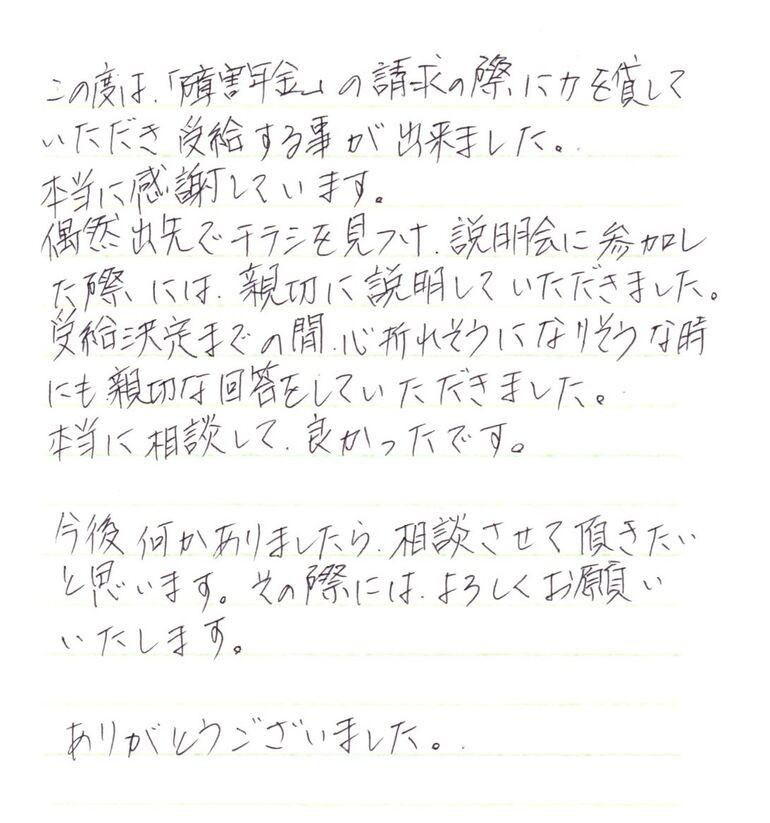 この度は、「障害年金」の請求の際に力を貸して
いただき受給する事が出来ました。
本当に感謝しています。
偶然出先でチラシを見つけ、説明会に参加し
た際には、親切に説明していただきました。
受給決定までの間、心折れそうになりそうな時
にも親切な回答をしていただきました。
本当に相談して、良かったです。
今後何かありましたら、相談させて頂きたい
と思います。その際には、よろしくお願い
いたします。
ありがとうございました。